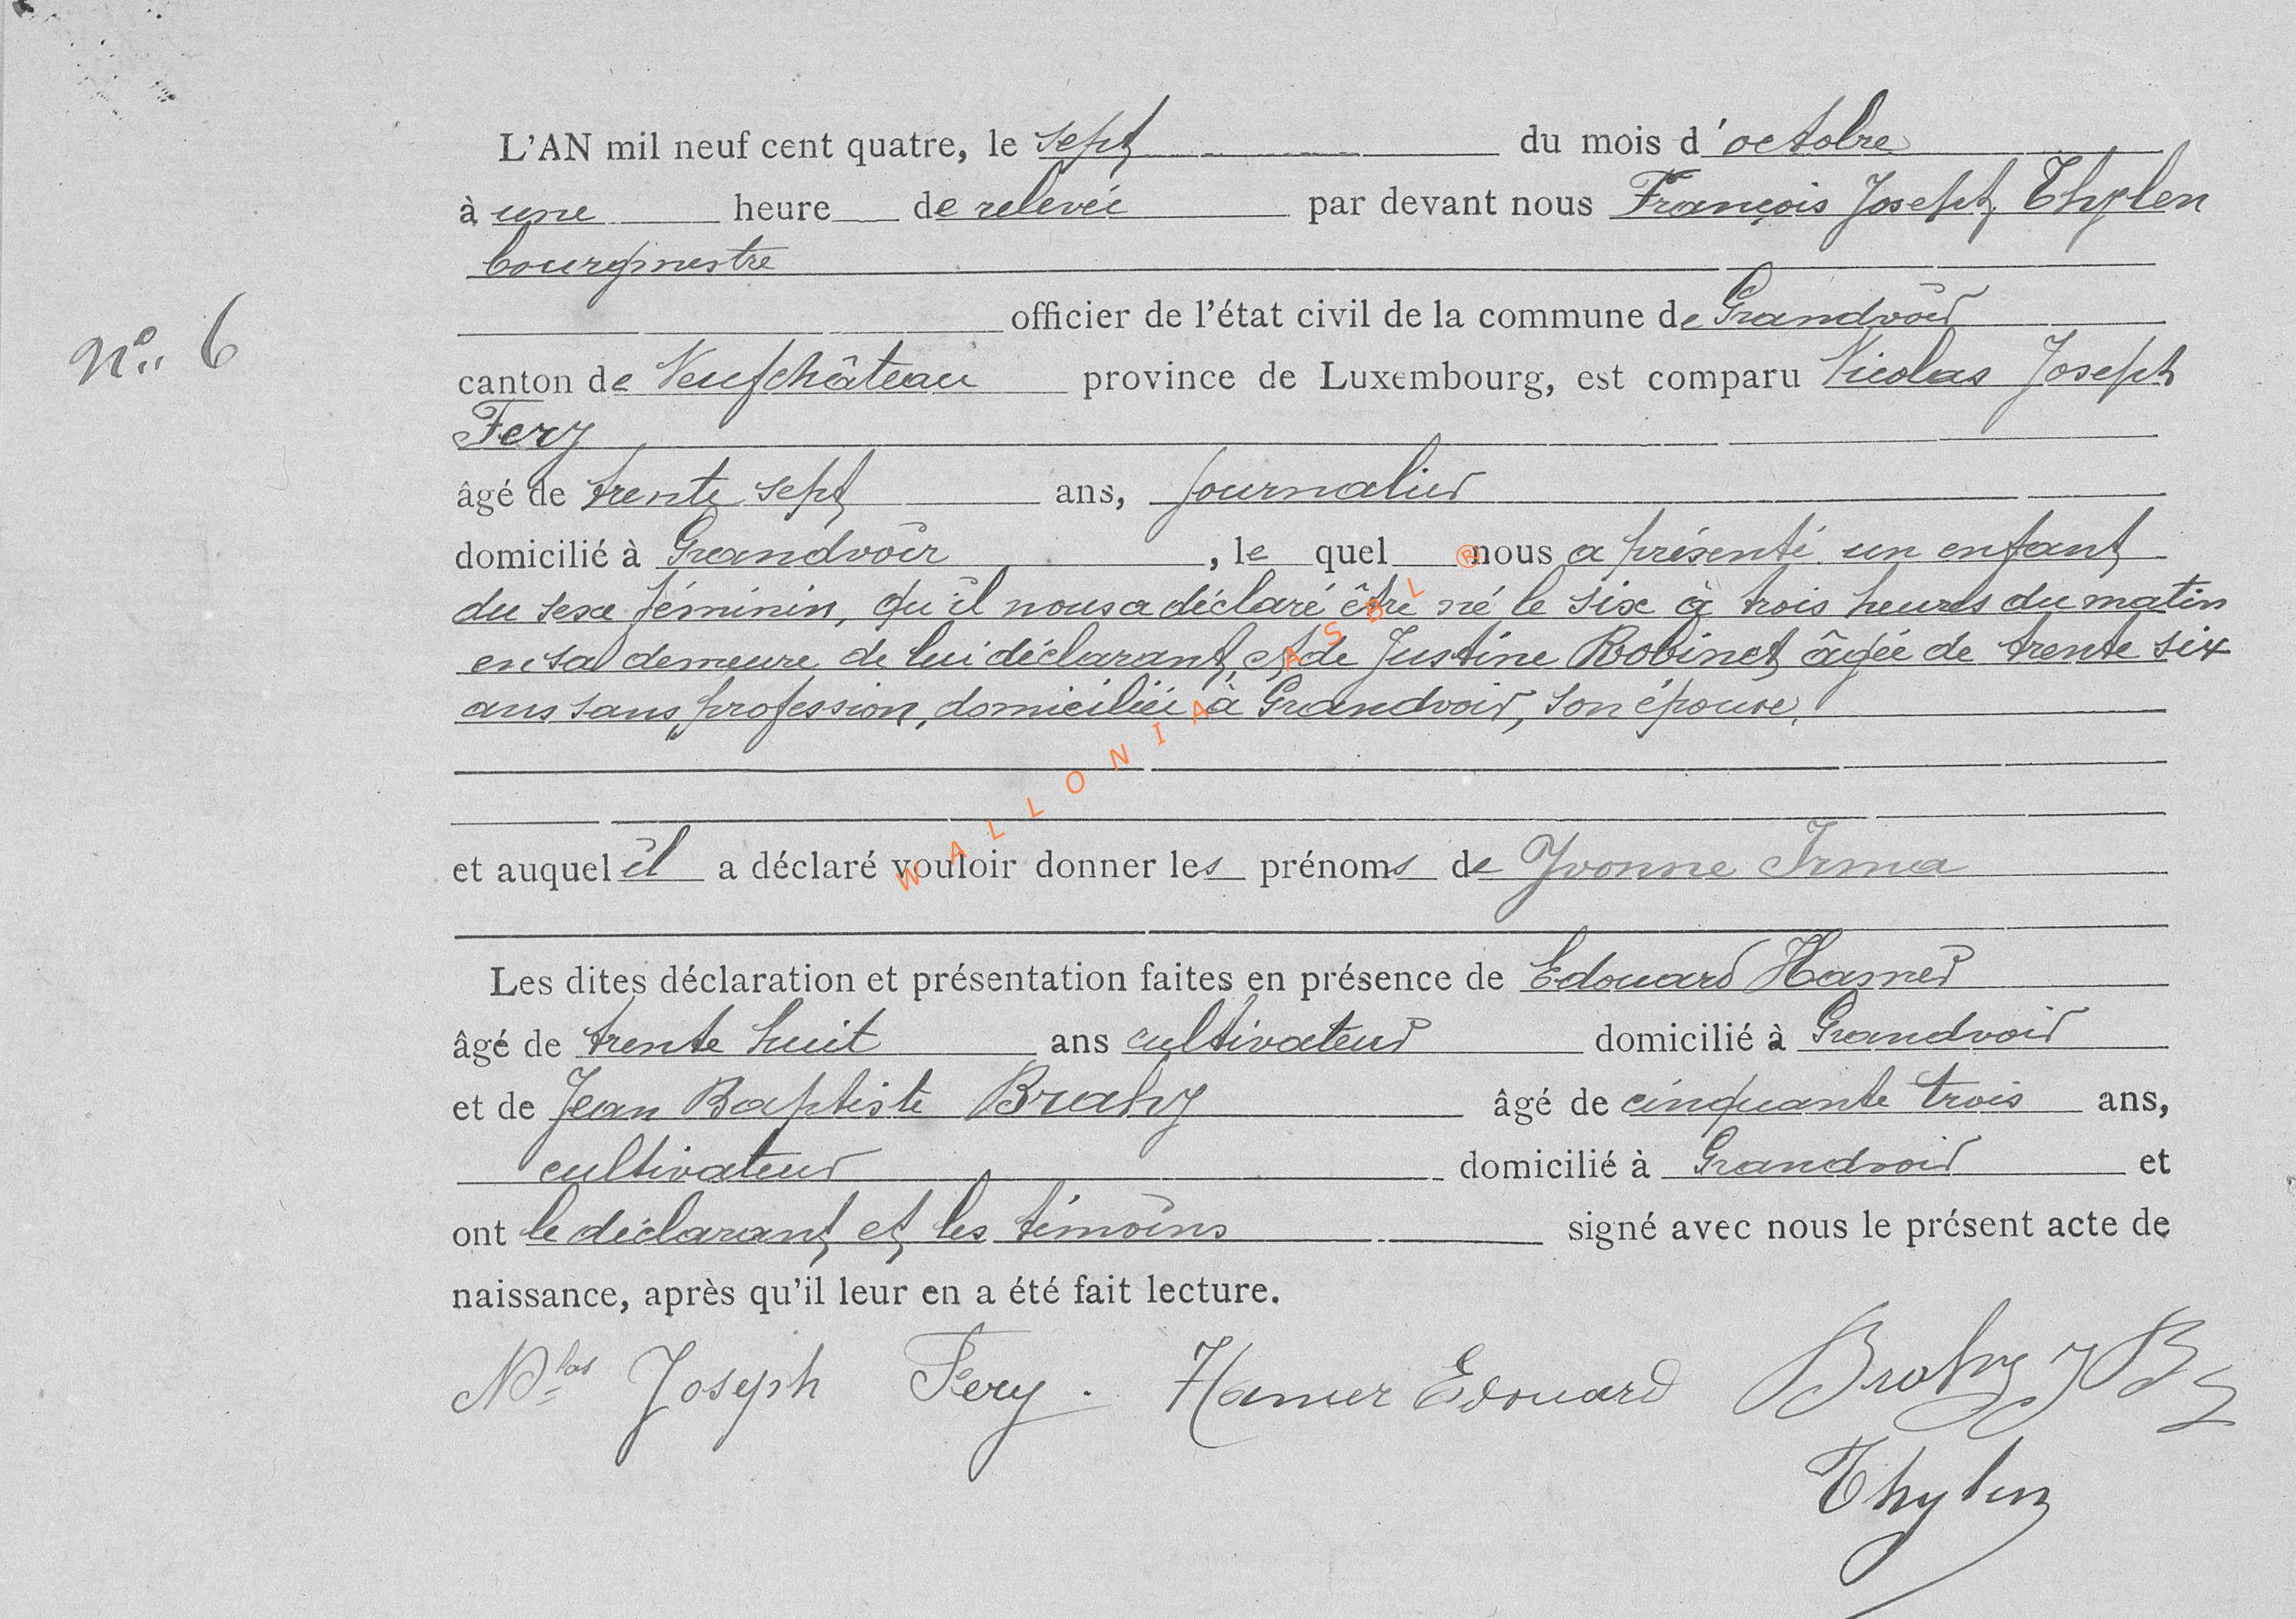 L'AN mil neuf cent quatre, le sept du mois d'octobre
à une heure de relevée par devant nous François Joseph Thylen
bourgmestre
officier de l'état civil de la commune de Grandvoir
N° 6
canton de Neufchâteau province de Luxembourg, est comparu Nicolas Joseph
Fery
âgé de trente sept ans, journalier
domicilié à Grandvoir, le quel nous a présenté un enfant
du sexe féminin, qu'il nous a déclaré être né le six à trois heures du matin
en sa demeure de lui déclarant, et de Justine Robinet âgée de trente six
ans sans profession, domiciliée à Grandvoir, son épouse,
WALLONIA ASBL ®
et auquel il a déclaré vouloir donner les prénoms de Yvonne Irma
Les dites déclaration et présentation faites en présence de Edouard Hamer
âgé de trente huit ans cultivateur domicilié à Grandvoir
et de Jean Baptiste Brahy âgé de cinquante trois ans,
cultivateur domicilié à Grandvoir et
ont le déclarant et les témoins signé avec nous le présent acte de
naissance, après qu'il leur en a été fait lecture.
N.las Joseph Fery. Hamer Edouard Brahy J B
Thylen